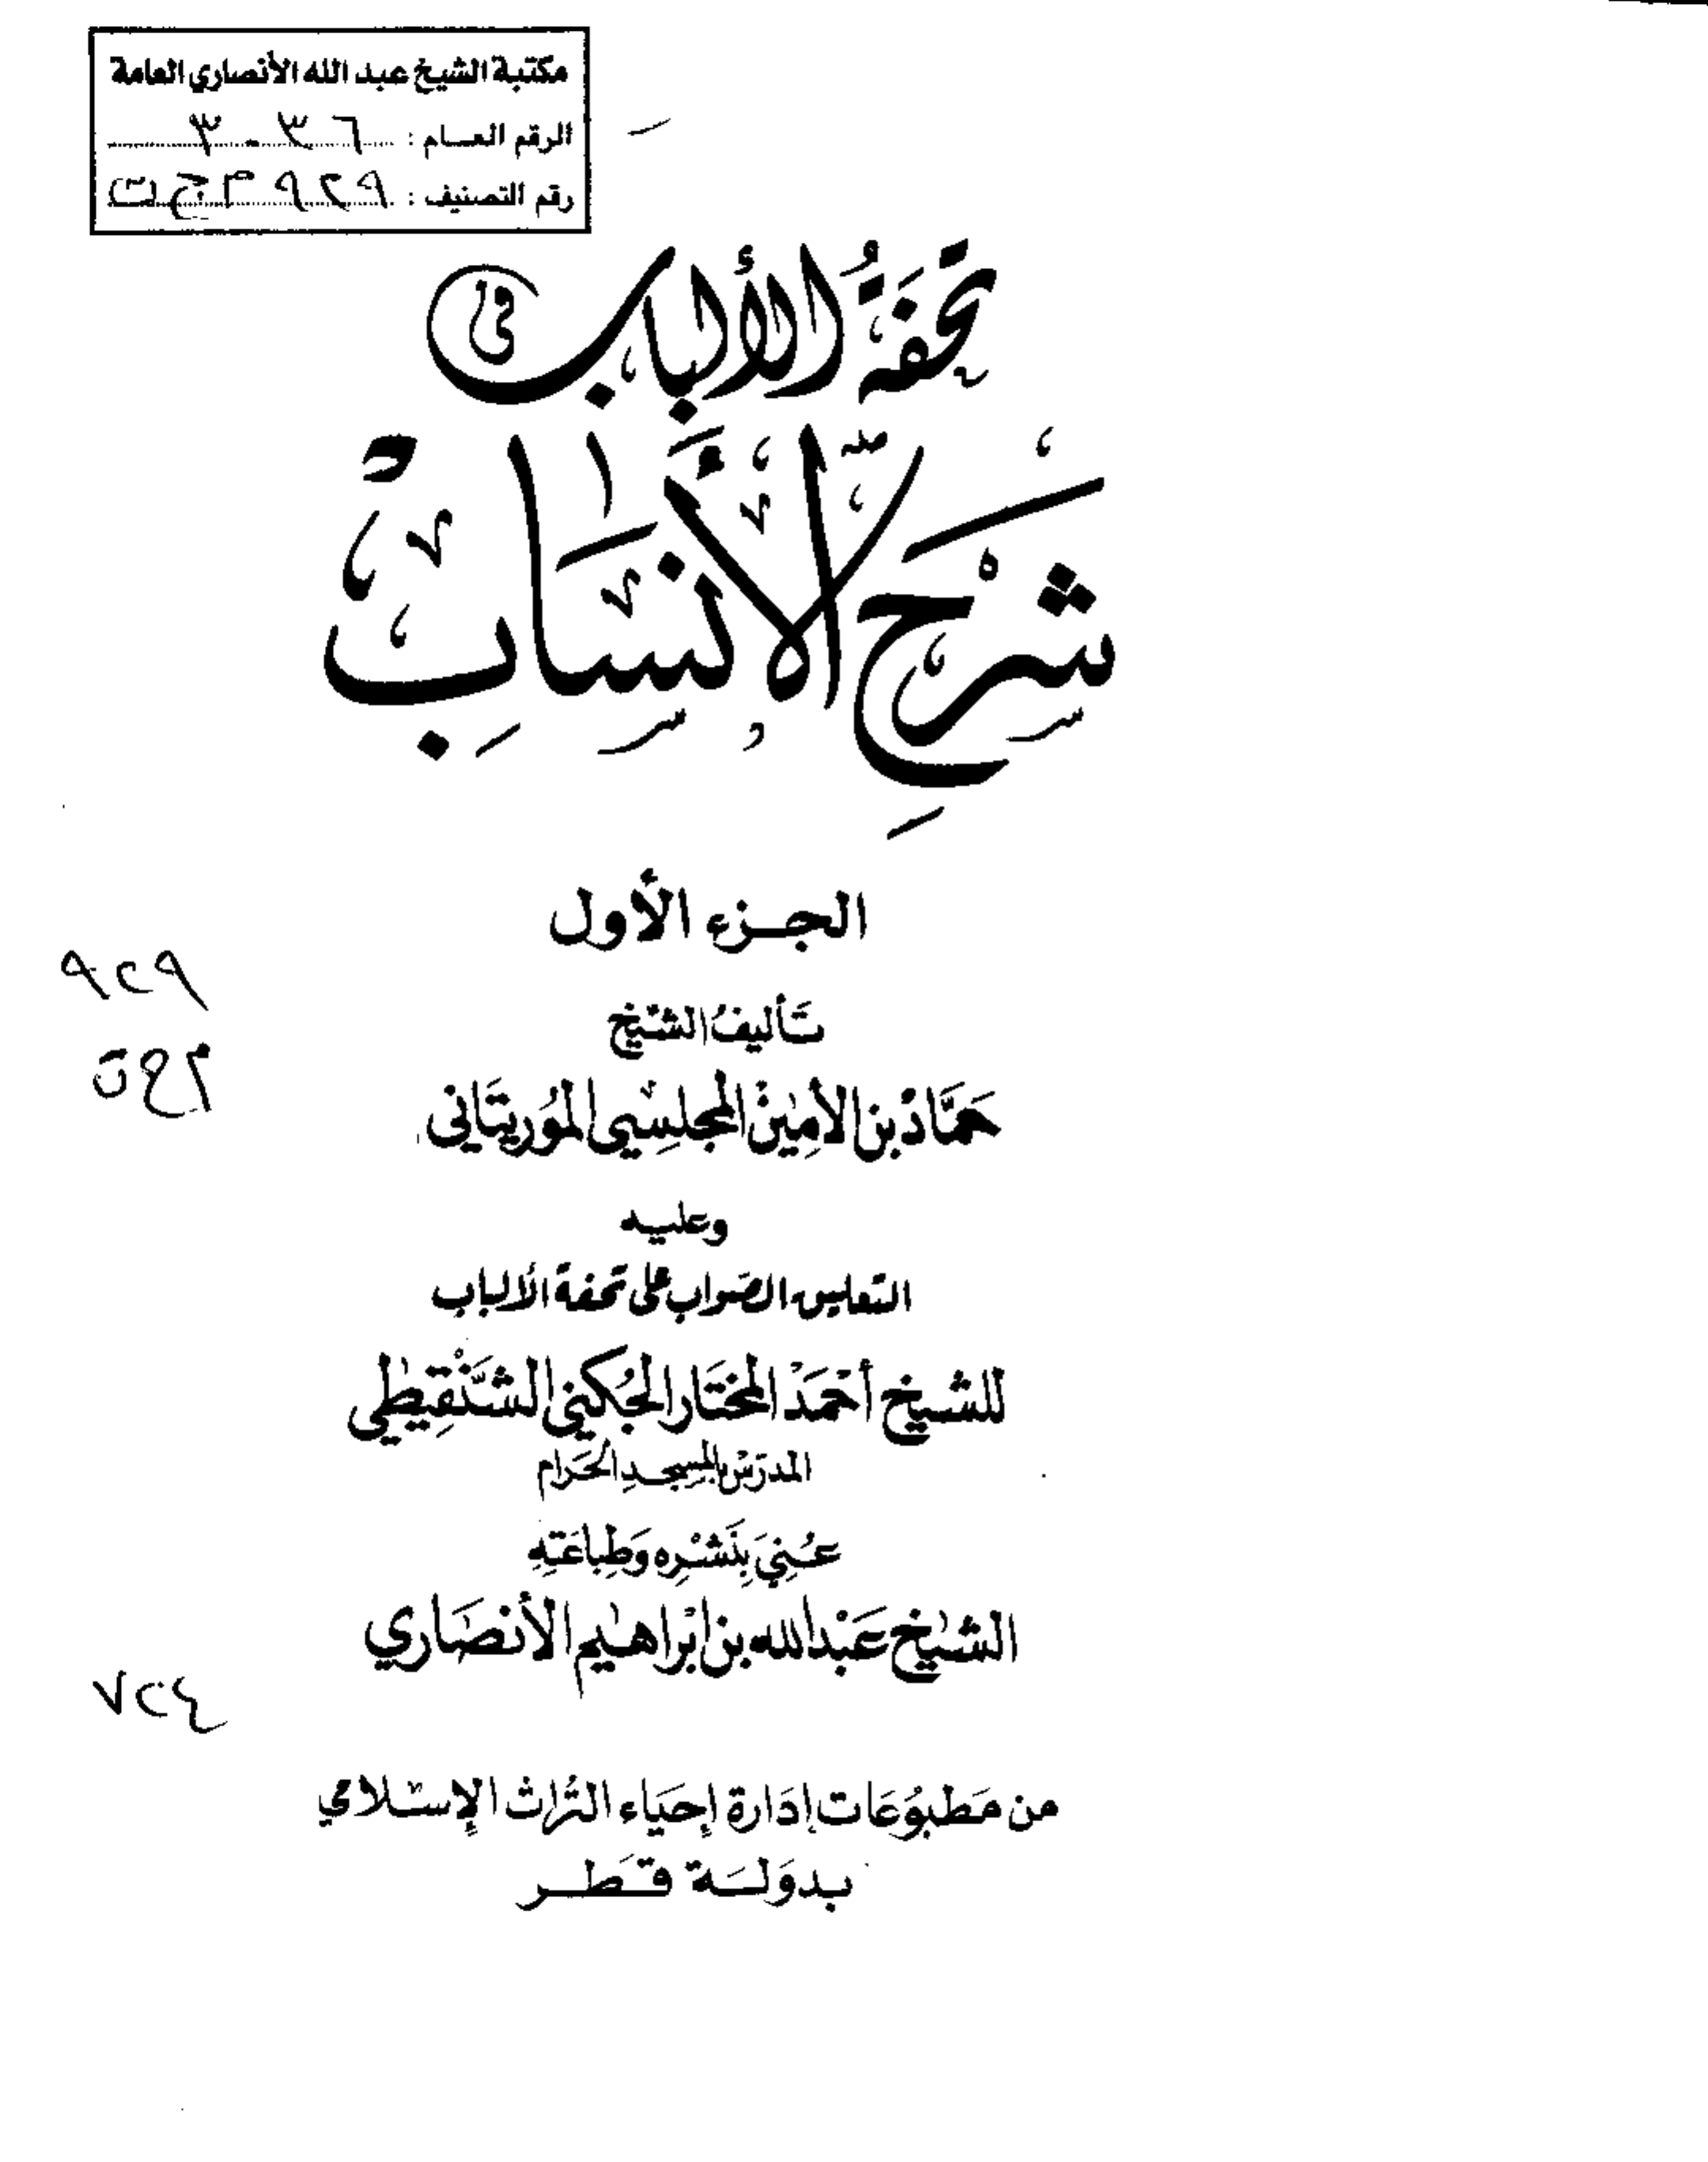 مكتبة الشيخ عبد الله الأنصاري العامة
الرقم العسام : ٣٠٣٦
رقم التصنيف : ٩٢٩ م ج ت
تحفة الألباب في
شَرْحِ الأَنْسَابِ
الجزء الأول
٩٢٩
تَأليفُ الشيخ
حَمَّادُ بن الأمِينْ المجلِسِي المُورِيتَاني
وعليه
التعليق الصَواب على تحفة الألباب
للشيخ أحْمَدْ المختَار الجُكني الشَّنْقِيطي
المدرّسْ بالمسِجدِ الحَرام
عُنيَ بِنَشْرِه وَطِبَاعَتِهِ
الشيخ عَبْدالله بن ابْراهيم الأنصَاري
٧٢٤
من مَطبوُعَات إدَارة إحيَاء التُراث الإسْلامي
بدوَلَة قَطر